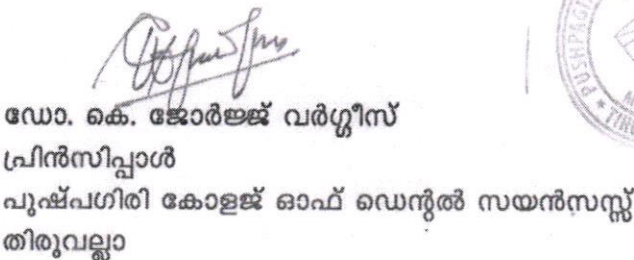 ഡോ. കെ. ജോർജ്ജ് വർഗ്ഗീസ്
പ്രിൻസിപ്പാൾ
പുഷ്പഗിരി കോളജ് ഓഫ് ഡെന്റൽ സയൻസസ്സ്
തിരുവല്ലാ
PUSHPAGI